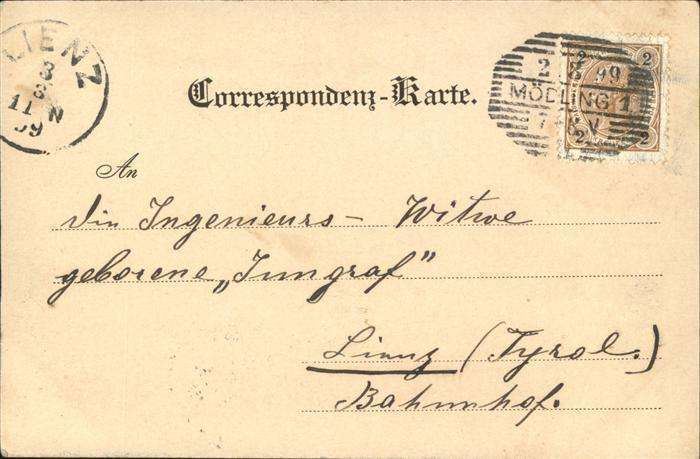 LIENZ
3
8
11 N
99
2 8 99
MÖDLING 1
2
2
2
2
Correspondenz-Karte.
An
die Ingenieurs- Witwe
geborene „Jungraf"
Lienz (Tyrol.)
Bahnhof.